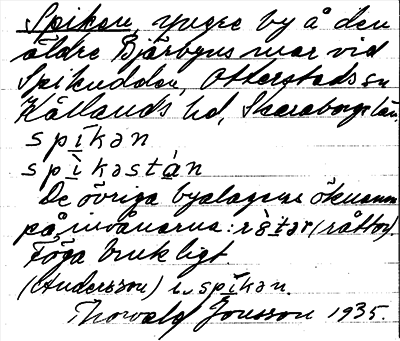 Spiken, yngre by å den
äldre Bjärbyns mar vid
Spikudden, Otterstads sn
Kållands hd, Skaraborgs län.
spi̱kən
spi̱kəstá̱n
De övriga byalagens öknamn
på invånarna: rò̱tər (råttor).
Föga brukligt.
(Andersson) i, spi̱kən.
Thorvald Jonsson 1935.